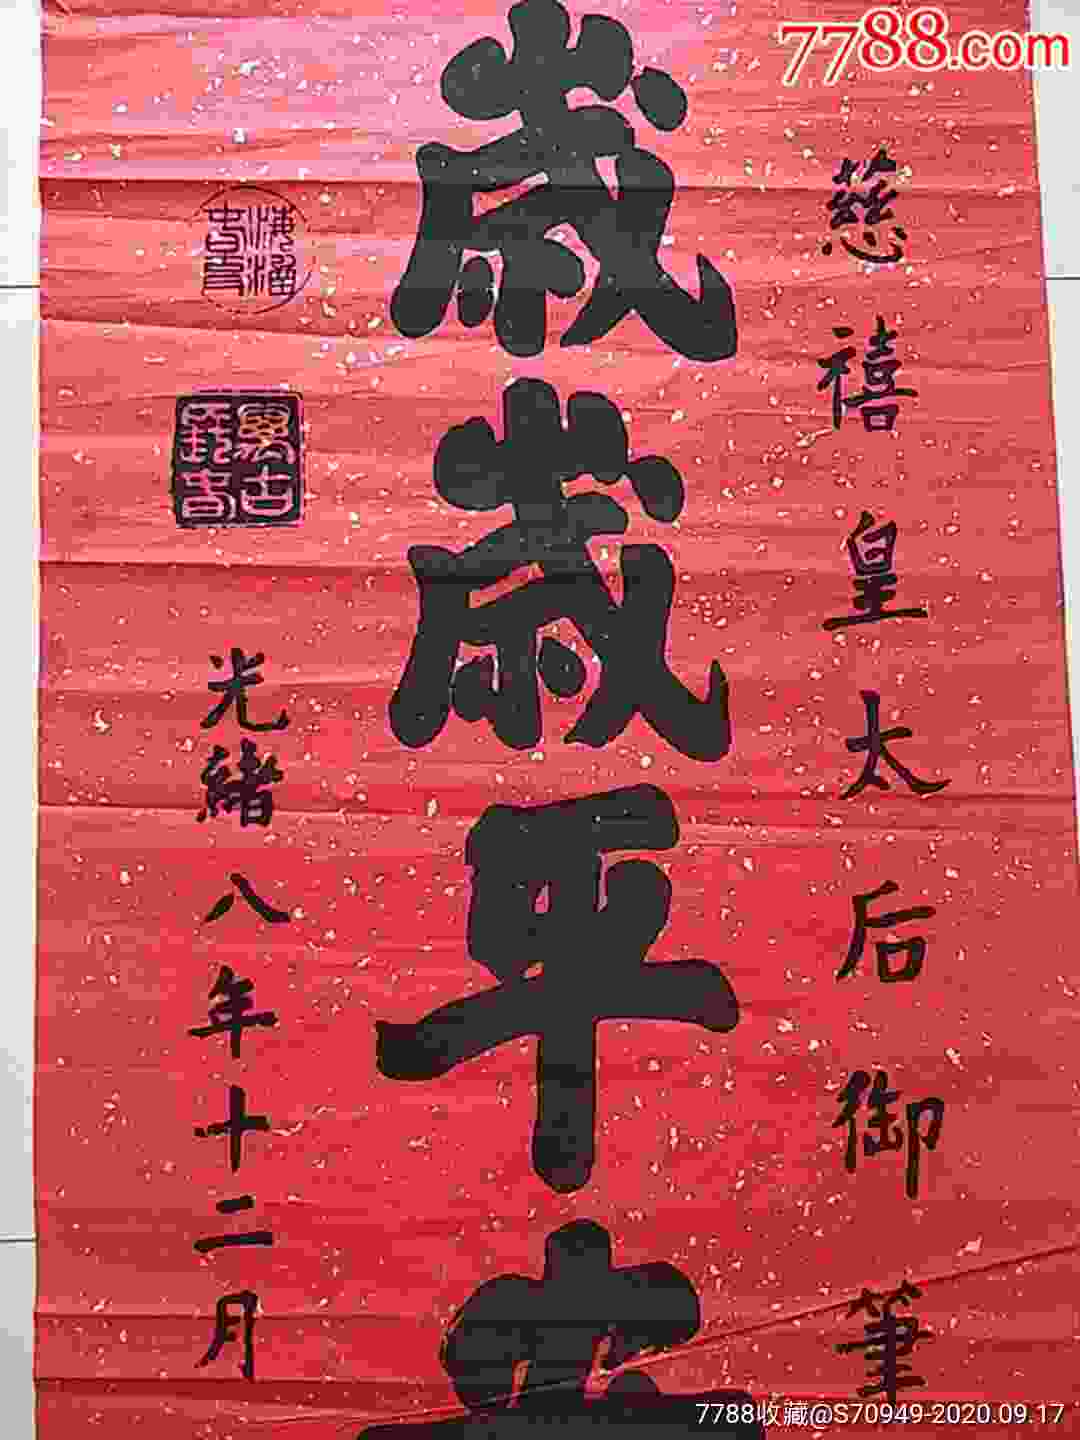 7788.com
慈禧皇太后御筆
歲歲平安
光緒八年十二月
7788收藏@S70949-2020.09.17